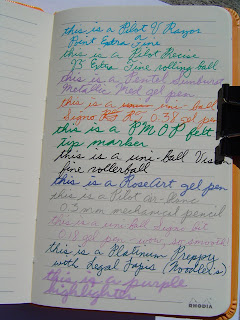 this is a Pilot V Razor
Point Extra Fine
this is a Pilot Precise
V3 Extra Fine rolling ball
this is a Pentel Sunburst
Metallic Med gel pen
this is a uni-ball
Signo RT 0.38 gel pen
this is a PMOP felt
tip marker.
this is a uni-ball Vis
fine rollerball
this is a RoseArt gel pen
this is a Pilot
0.3 mm mechanical pencil
this is a uni-ball Signo bit
0.18 gel pen, wow, so smooth!
this is a Platinum Preppy
with Legal Lapis (Noodler's)
this is a purple
highlighter
RHODIA